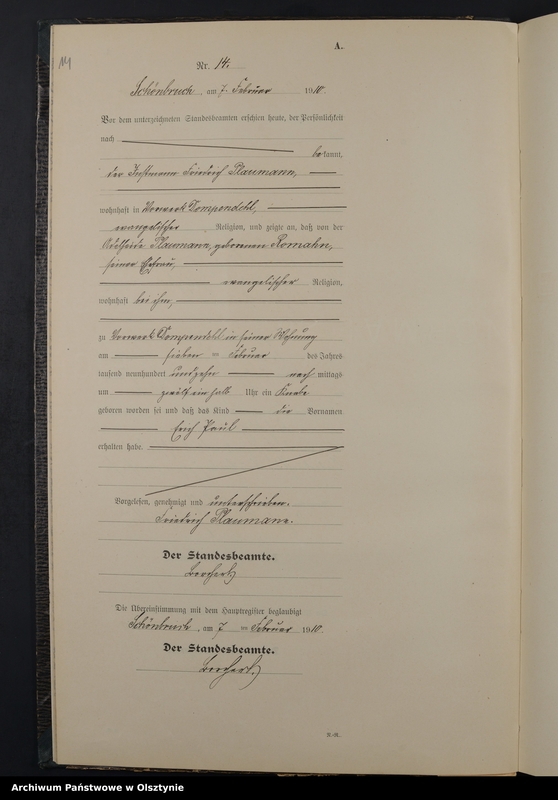 14
A.
Nr. 14.
Schönbruch, am 7. Februar 1910.
Vor dem unterzeichneten Standesbeamten erschien heute, der Persönlichkeit
nach
bekannt,
der Instmann Friedrich Plaumann,
wohnhaft in Vorwerk Dompendehl,
evangelischer Religion, und zeigte an, daß von der
Adelheide Plaumann, geborenen Romahn,
seiner Ehefrau,
evangelischer Religion,
wohnhaft bei ihm,
zu Vorwerk Dompendehl in seiner Wohnung
am sieben Februar des Jahres
tausend neunhundert und zehn nach mittags
um zwölf ein halb Uhr ein Knabe
geboren worden sei und daß das Kind die Vornamen
Erich Paul
erhalten habe.
Vorgelesen, genehmigt und unterschrieben.
Friedrich Plaumann.
Der Standesbeamte.
Borchert
Die Übereinstimmung mit dem Hauptregister beglaubigt
Schönbruch, am 7 Februar 1910.
Der Standesbeamte.
Borchert.
Archiwum Państwowe w Olsztynie